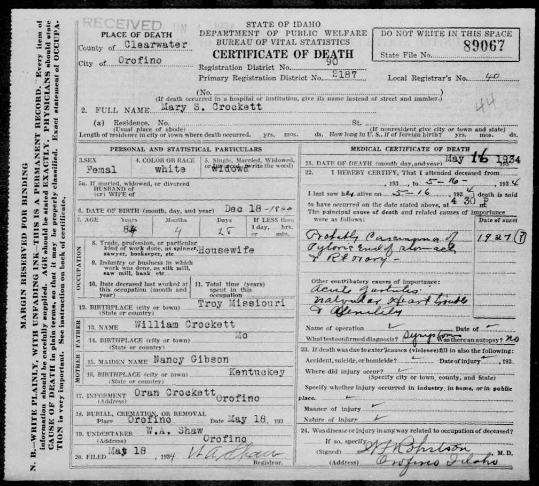 RECEIVED
STATE OF IDAHO
DEPARTMENT OF PUBLIC WELFARE
BUREAU OF VITAL STATISTICS
CERTIFICATE OF DEATH
DO NOT WRITE IN THIS SPACE
89067
State File No.
PLACE OF DEATH
County of Clearwater
City of Orofino
Registration District No. 90
Primary Registration District No. 2187
Local Registrar's No. 40
(No.
(If death occurred in a hospital or institution, give its name instead of street and number.)
44
2. FULL NAME Mary S. Crockett
(a) Residence. No. St.
(Usual place of abode) (If nonresident give city or town and state)
Length of residence in city or town where death occurred. yrs. mos. ds. How long in U.S., if of foreign birth? yrs. mos. ds.
PERSONAL AND STATISTICAL PARTICULARS
3. SEX Femal
4. COLOR OR RACE white
5. Single, Married, Widowed, or Divorced (write the word) Widowd
5a. If married, widowed, or divorced
HUSBAND of
(or) WIFE of
6. DATE OF BIRTH (month, day, and year) Dec 18
7. AGE Years Months Days If LESS than
4 28 1 day, hrs.
or min.
OCCUPATION
8. Trade, profession, or particular kind of work done, as spinner, sawyer, bookkeeper, etc Housewife
9. Industry or business in which work was done, as silk mill, saw mill, bank etc
10. Date deceased last worked at this occupation (month and year)
11. Total time (years) spent in this occupation
12. BIRTHPLACE (city or town) Troy Missiouri
(State or country)
FATHER
13. NAME William Crockett
14. BIRTHPLACE (city or town) Mo
(State or country)
MOTHER
15. MAIDEN NAME Nancy Gibson
16. BIRTHPLACE (city or town) Kentuckey
(State or country)
17. INFORMENT Oran Crockett
(Address) Orofino
18. BURIAL, CREMATION, OR REMOVAL
Place Orofino Date May 18, 193
19. UNDERTAKER W.A. Shaw
(Address) Orofino
20. FILED May 18 1934 W A Shaw
Registrar.
MEDICAL CERTIFICATE OF DEATH
21. DATE OF DEATH (month, day, and year) May 16 1934
22. I HEREBY CERTIFY, That I attended deceased from
, 193 , to 5-16- , 1934
I last saw h alive on 5-16 , 1934 death is said
to have occurred on the date stated above, at 4 30 P
The principal cause of death and related causes of importance were as follows:
Date of onset
Probably Carcinoma of
Pyloric end of stomach
1927 (?)
Other contributory causes of importance:
Valvular Heart trouble
& Senility
Name of operation Date of
What test confirmed diagnosis? Symptoms Was there an autopsy? no
23. If death was due to external causes (violence) fill in also the following:
Accident, suicide, or homicide? Date of injury , 193
Where did injury occur?
(Specify city or town, county, and State)
Specify whether injury occurred in industry, in home, or in public place.
Manner of injury
Nature of injury
24. Was disease or injury in any way related to occupation of deceased?
If so, specify
(Signed) M.D.
(Address) Orofino Idaho
MARGIN RESERVED FOR BINDING
N. B.—WRITE PLAINLY, WITH UNFADING INK—THIS IS A PERMANENT RECORD. Every item of
information should be carefully supplied. AGE should be stated EXACTLY. PHYSICIANS should state
CAUSE OF DEATH in plain terms, so that it may be properly classified. Exact statement of OCCUPA-
TION is very important. See instruction on back of certificate.